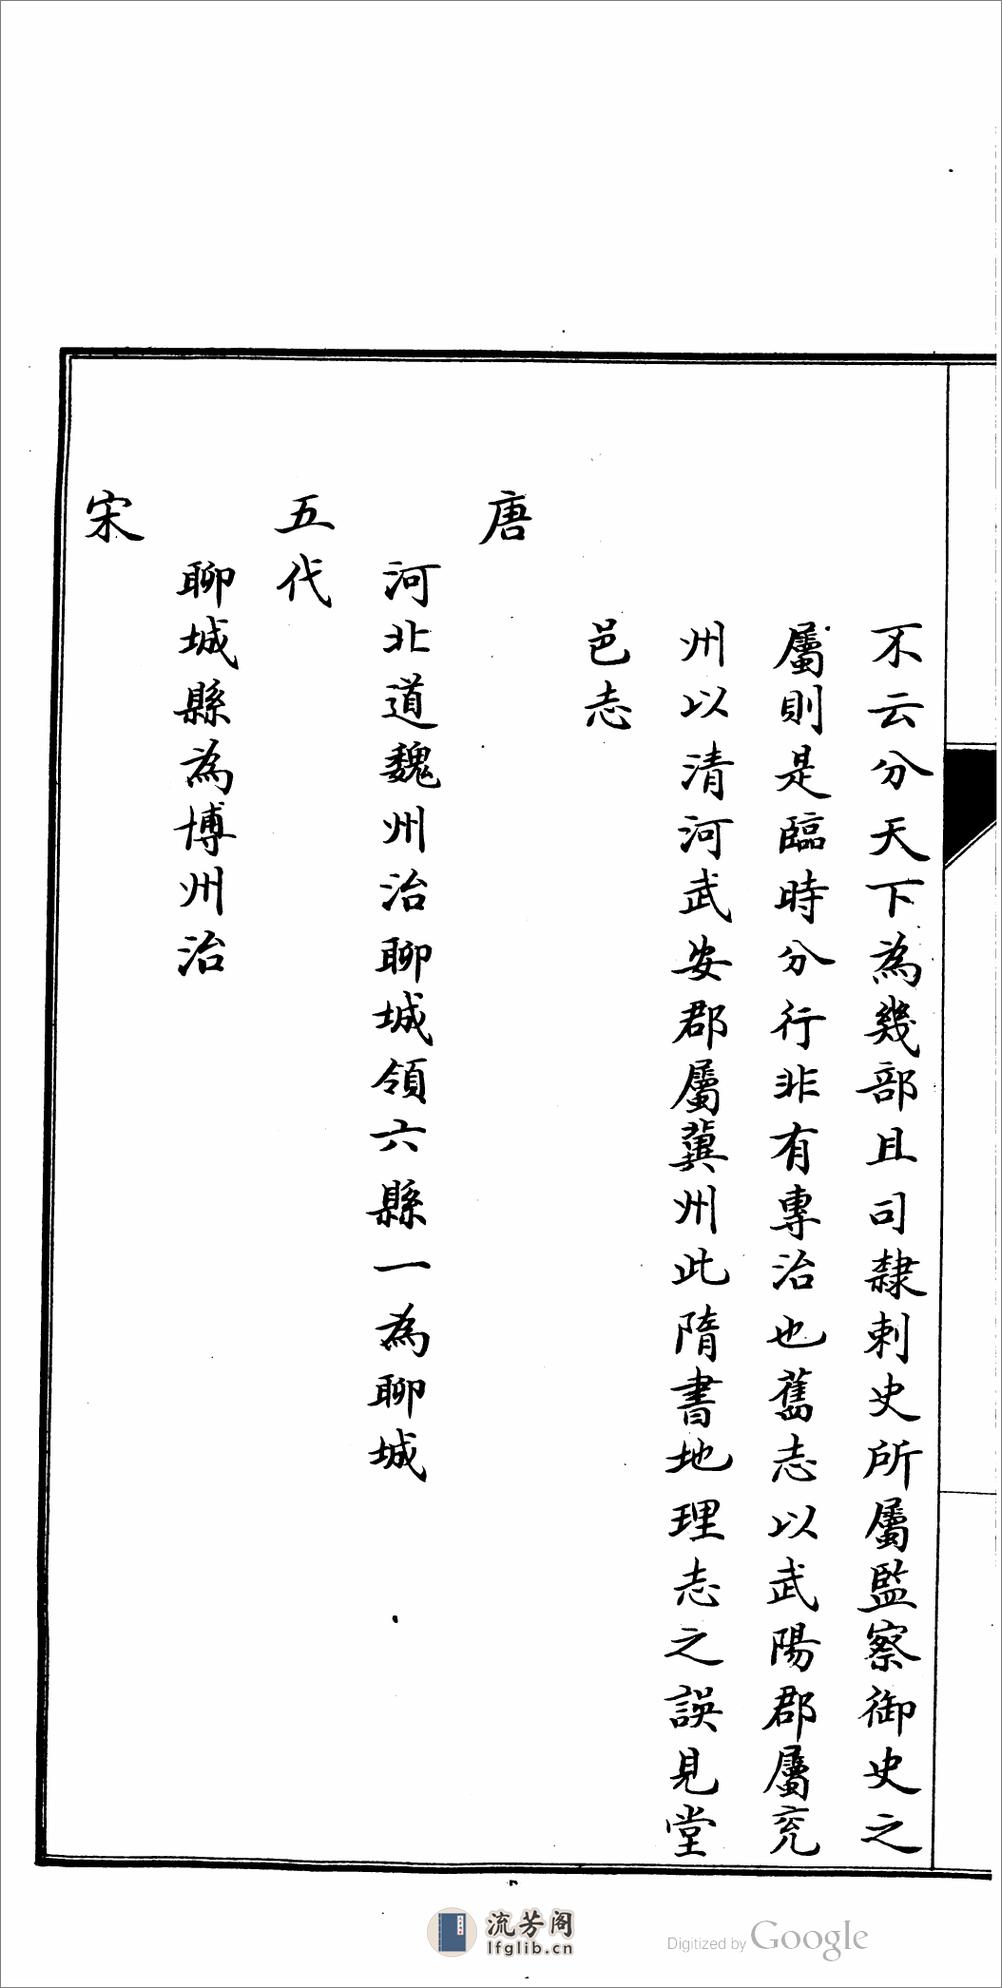 不云分天下為幾部且司隸刺史所屬監察御史之
屬則是臨時分行非有專治也舊志以武陽郡屬兖
州以清河武安郡屬冀州此隋書地理志之誤見堂
邑志
唐
河北道魏州治聊城領六縣一為聊城
五代
聊城縣為博州治
宋
流芳阁
lfglib.cn
Digitized by Google